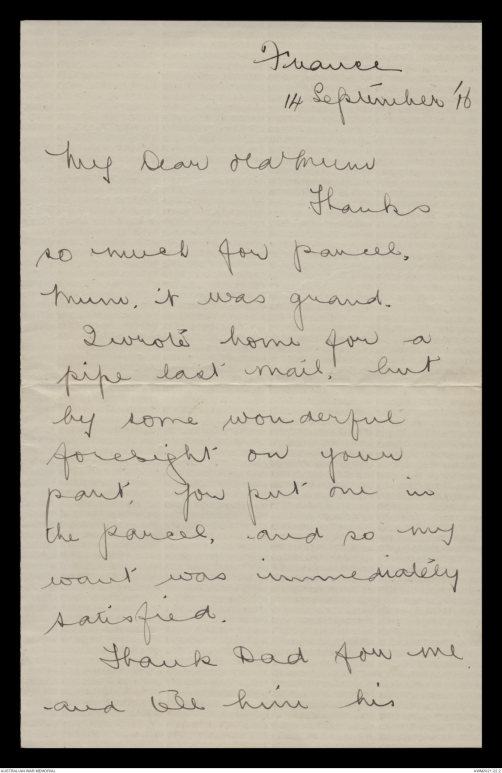 France
14 September '16
My Dear old Mum
Thanks
so much for parcel,
Mum, it was grand.
I wrote home for a
pipe last mail, but
by some wonderful
foresight on your
part, you put one in
the parcel, and so my
want was immediately
satisfied.
Thank Dad for me
and tell him his
AUSTRALIAN WAR MEMORIAL